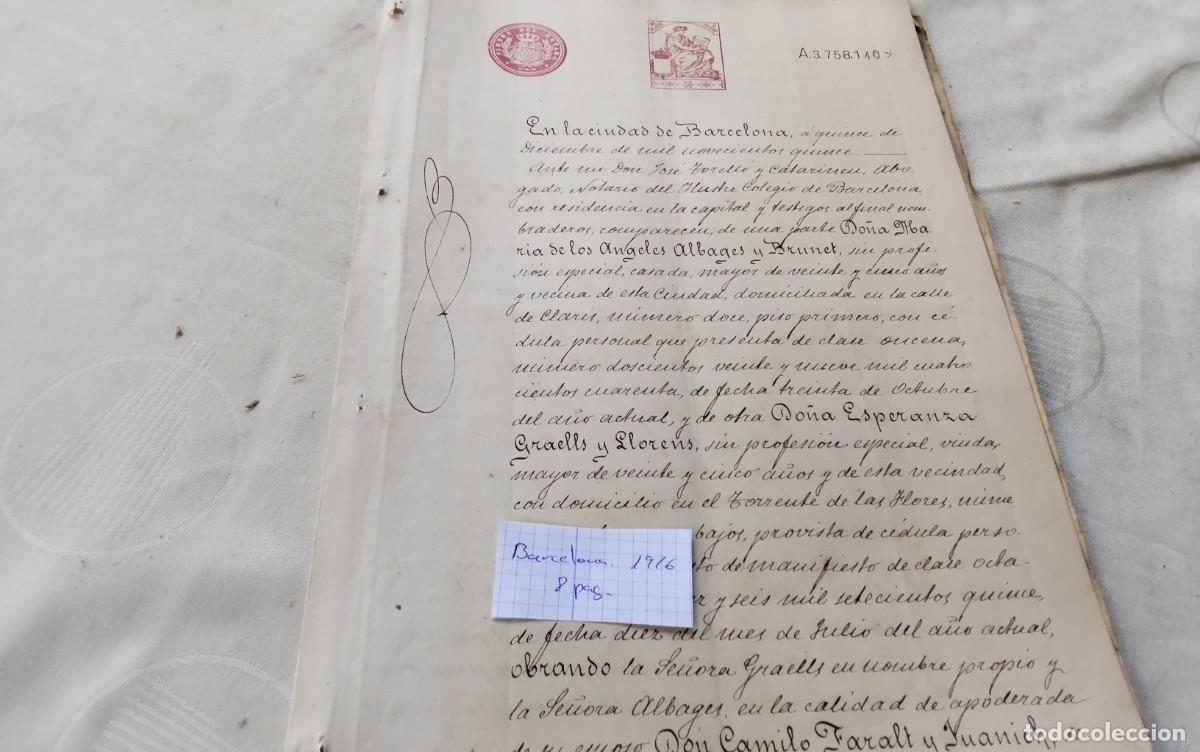 A.3.758.140
En la ciudad de Barcelona, á quince de
Diciembre de mil novecientos quince.
Ante mi Don José Torelló y Catarineu, Abo-
gado, Notario del Ilustre Colegio de Barcelona,
con residencia en la capital y testigos al final nom-
braderos, comparecen, de una parte Doña Ma
ria de los Angeles Albages y Brunet, sin profe-
sión especial, casada, mayor de veinte y cinco años
y vecina de esta Ciudad, domiciliada en la calle
de Claris, número doce, piso primero, con cé-
dula personal que presenta de clase oncena,
número doscientos veinte y nueve mil cuatro
cientos cuarenta, de fecha treinta de Octubre
del año actual, y de otra Doña Esperanza
Graells y Llorens, sin profesión especial, viuda,
mayor de veinte y cinco años y de esta vecindad,
con domicilio en el Torrente de las Flores, núme
bajos, provista de cédula perso-
to de manifiesto de clase octa-
y seis mil setecientos quince,
de fecha diez del mes de Julio del año actual,
obrando la Señora Graells en nombre propio y
la Señora Albages, en la calidad de apoderada
de su esposo Don Camilo Faralt y Juanich
Barcelona. 1916
8 pag.
todocoleccion